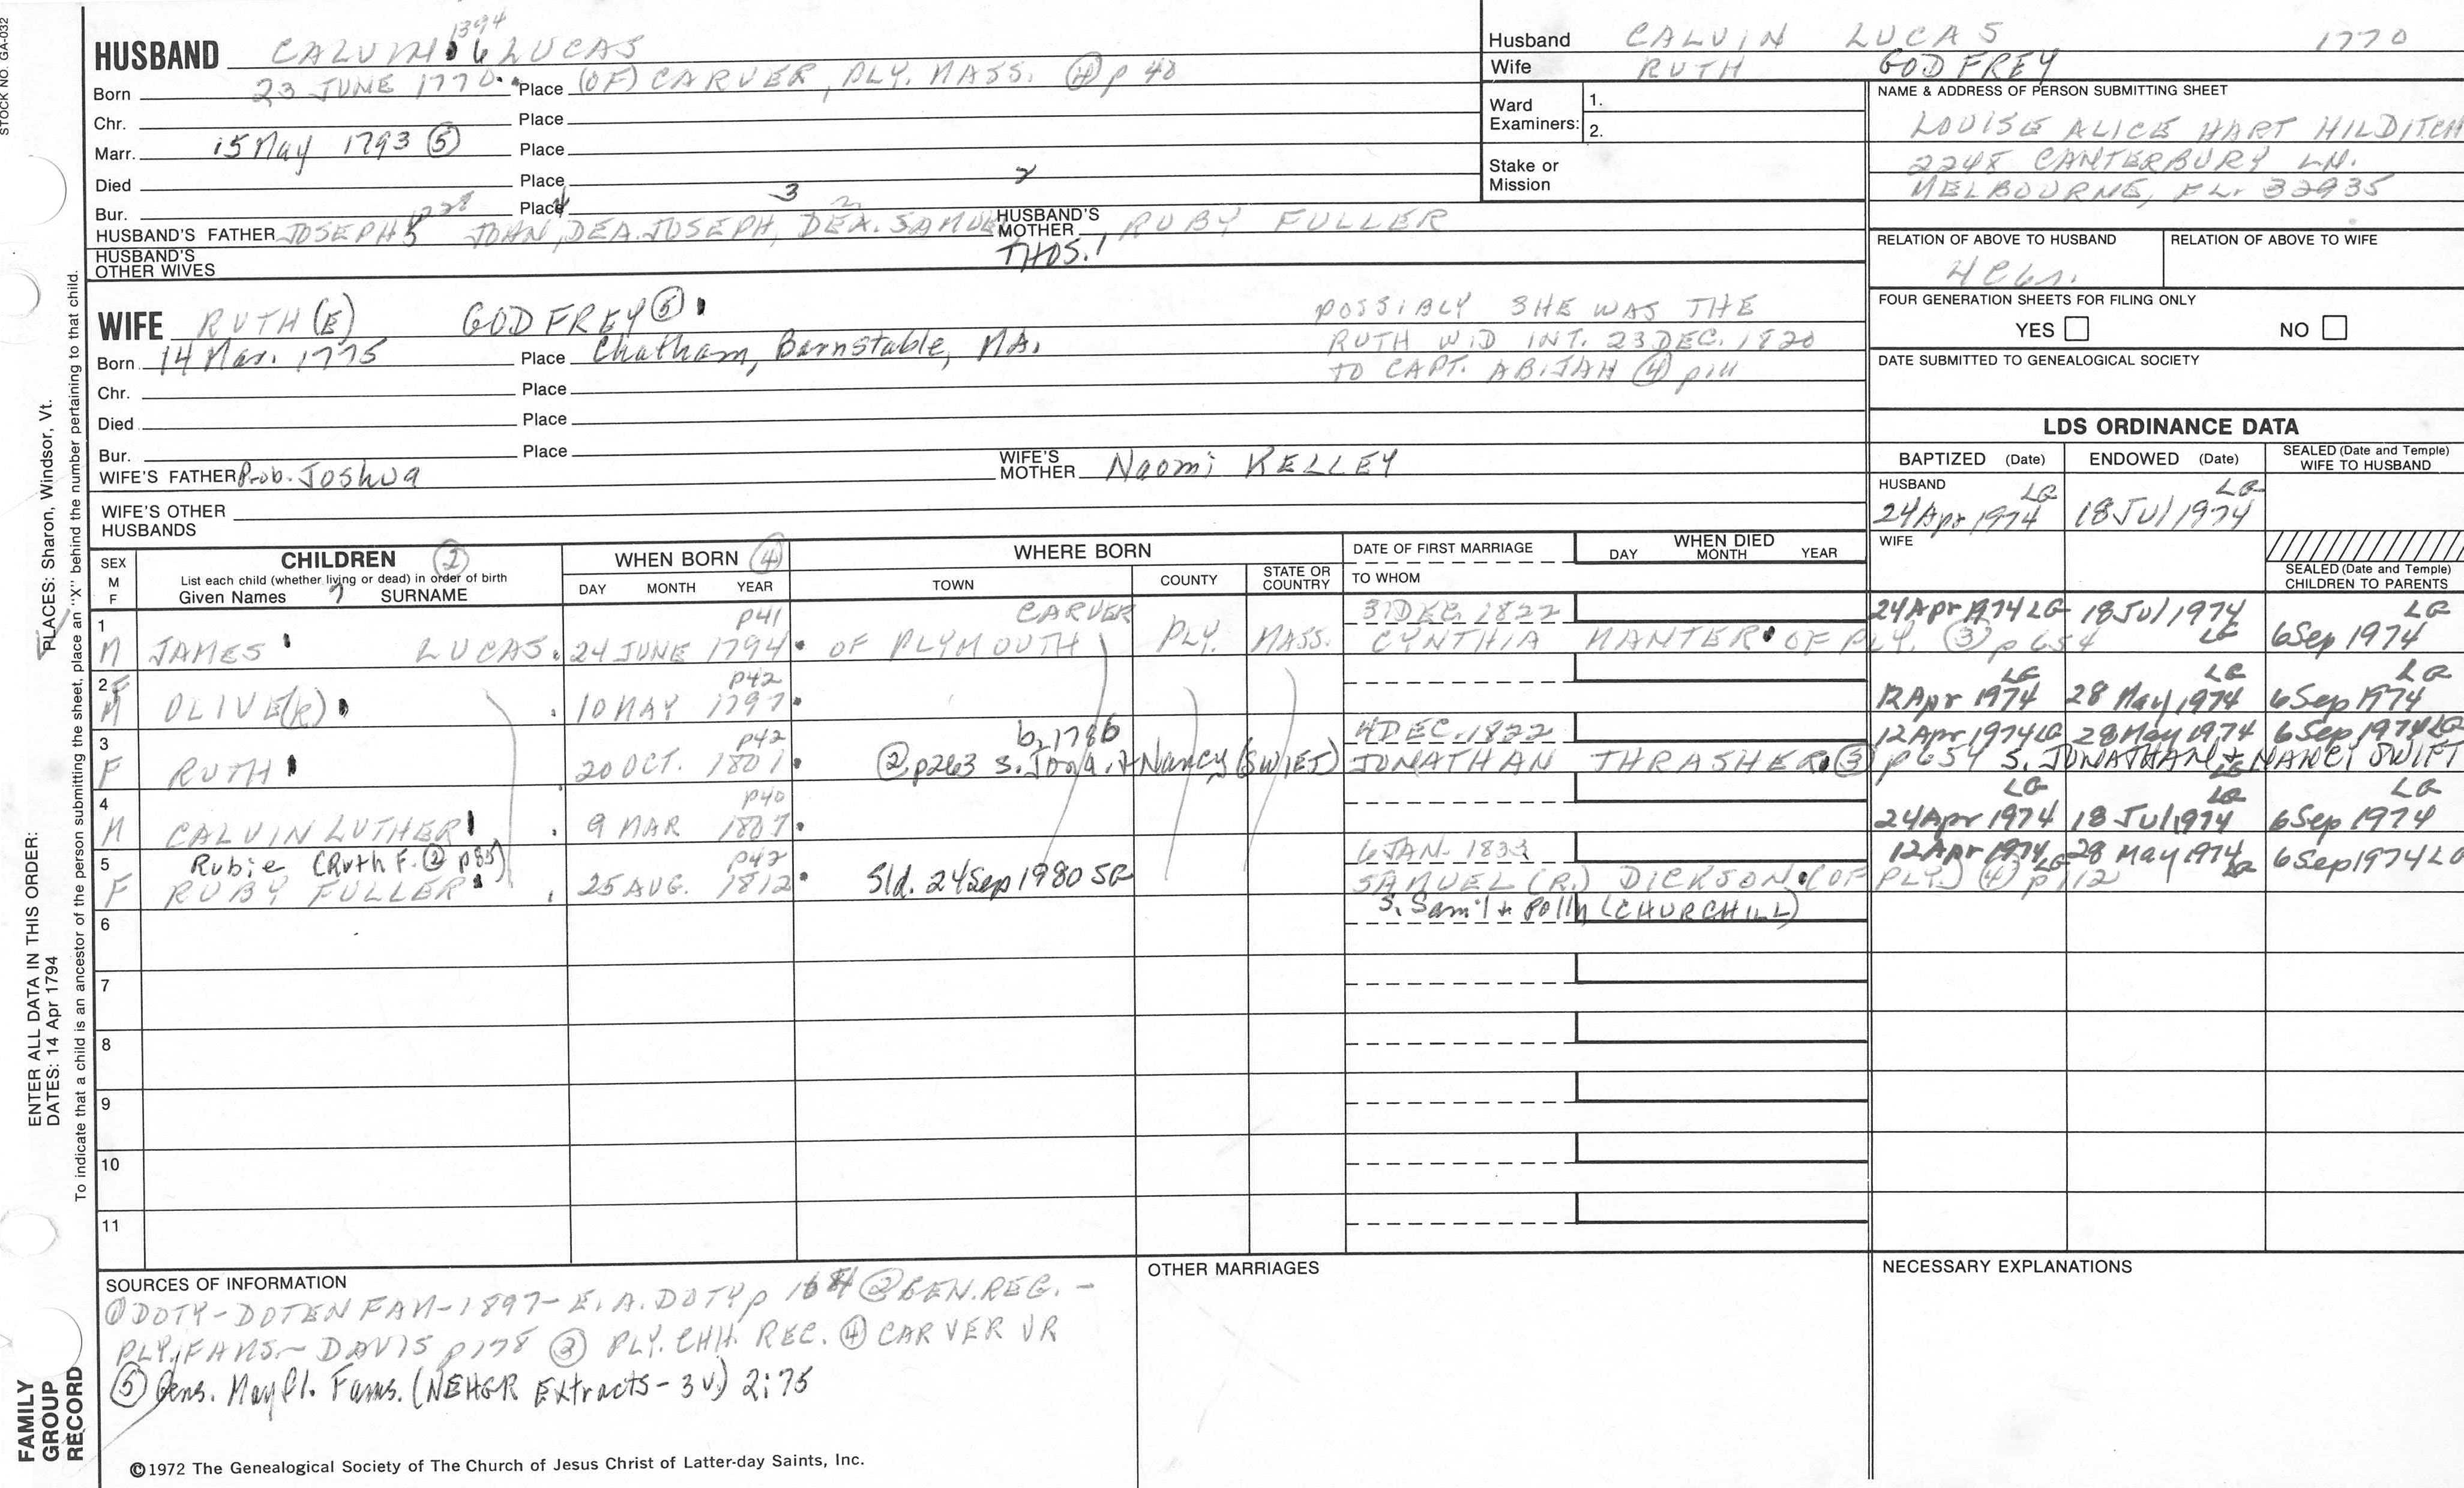 STOCK NO. GA-032
1394
HUSBAND CALVIN 6 LUCAS
Born 23 JUNE 1770 Place (OF) CARVER, PLY. MASS. ④ p 40
Chr. Place
Marr. 15 May 1793 ⑤ Place
Died Place
Bur. Place
HUSBAND'S FATHER JOSEPH 5 JOHN 4, DEA. JOSEPH, 3 DEA. SAMUEL 2 THOS. 1
HUSBAND'S MOTHER RUBY FULLER
HUSBAND'S OTHER WIVES
WIFE RUTH (E) GODFREY ⑤
Born 14 Mar. 1775 Place Chatham, Barnstable, MA.
Chr. Place
Died Place
Bur. Place
POSSIBLY SHE WAS THE
RUTH WID INT. 23 DEC. 1820
TO CAPT. ABIJAH ④ p111
WIFE'S FATHER Prob. Joshua
WIFE'S MOTHER Naomi KELLEY
WIFE'S OTHER HUSBANDS
Husband CALVIN LUCAS 1770
Wife RUTH GODFREY
Ward Examiners: 1.
2.
Stake or Mission
NAME & ADDRESS OF PERSON SUBMITTING SHEET
LOUISE ALICE HART HILDITCH
2248 CANTERBURY LN.
MELBOURNE, FL. 32935
RELATION OF ABOVE TO HUSBAND
RELATION OF ABOVE TO WIFE
FOUR GENERATION SHEETS FOR FILING ONLY
YES NO
DATE SUBMITTED TO GENEALOGICAL SOCIETY
LDS ORDINANCE DATA
BAPTIZED (Date) ENDOWED (Date) SEALED (Date and Temple) WIFE TO HUSBAND
HUSBAND LG LG
24 Apr 1974 18 Jul 1974
WIFE
SEALED (Date and Temple) CHILDREN TO PARENTS
SEX M F
CHILDREN ②
List each child (whether living or dead) in order of birth
Given Names SURNAME
WHEN BORN ④
DAY MONTH YEAR
WHERE BORN
TOWN COUNTY STATE OR COUNTRY
DATE OF FIRST MARRIAGE
TO WHOM
WHEN DIED
DAY MONTH YEAR
1 p41 CARVER 31 DEC. 1822 24 Apr 1974 LG 18 Jul 1974 LG LG
M JAMES LUCAS. 24 JUNE 1794 OF PLYMOUTH PLY. MASS. CYNTHIA MANTER OF PLY. ③ p 654 6 Sep 1974
2 F p42 LG LG LG
M OLIVE(R) 10 MAY 1797 12 Apr 1974 28 May 1974 6 Sep 1974
3 p42 b. 1786 4 DEC. 1822 12 Apr 1974 LG 28 May 1974 LG 6 Sep 1974 LG
F RUTH 20 OCT. 1801 ② p263 s. Jona. + Nancy (SWIFT) JONATHAN THRASHER ③ p654 S. JONATHAN + NANCY SWIFT
4 p40 LG LG LG
M CALVIN LUTHER 9 MAR 1807 24 Apr 1974 18 Jul 1974 6 Sep 1974
5 Rubie (Ruth F. ② p85) p42 6 JAN. 1833 12 Apr 1974 LG 28 May 1974 LG 6 Sep 1974 LG
F RUBY FULLER 25 AUG. 1812 Sld. 24 Sep 1980 SG SAMUEL (R.) DICKSON (OF PLY.) ④ p112
s. Sam'l + Polly (CHURCHILL)
6
7
8
9
10
11
SOURCES OF INFORMATION
① DOTY-DOTEN FAM-1897-E.A. DOTY p ② GEN. REG. -
PLY. FAMS - DAVIS p178 ③ PLY. CHH. REC. ④ CARVER VR
⑤ Gens. Mayfl. Fams. (NEHGR Extracts - 3v.) 2:75
OTHER MARRIAGES
NECESSARY EXPLANATIONS
©1972 The Genealogical Society of The Church of Jesus Christ of Latter-day Saints, Inc.
ENTER ALL DATA IN THIS ORDER:
PLACES: Sharon, Windsor, Vt.
DATES: 14 Apr 1794
To indicate that a child is an ancestor of the person submitting the sheet, place an "X" behind the number pertaining to that child.
FAMILY GROUP RECORD